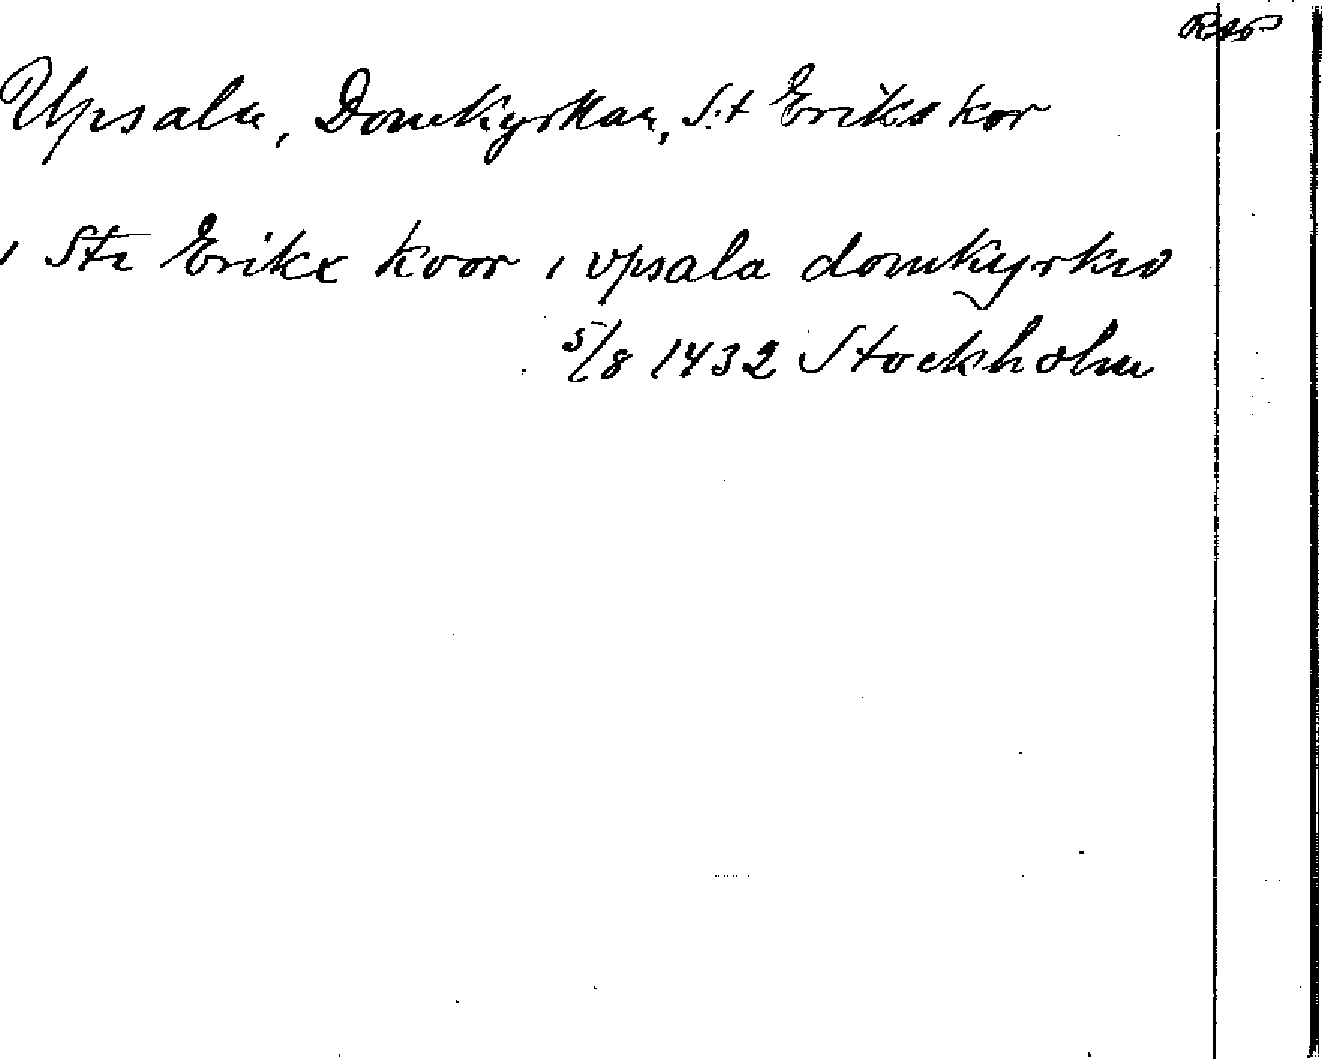 Upsala, Domkyrkan, S:t Eriks kor
i Ste Erikx koor i vpsala domkyrkio
5/8 1432 Stockholm